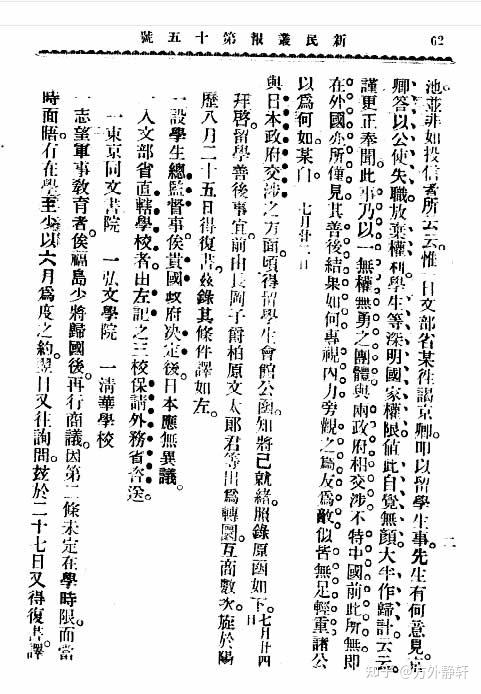 新民叢報第十五號
62
二
池並非如投信者所云云惟一日文部省某伴謁京卿叩以留學生事先生有何意見京
卿答以公使失職放棄權利學生等深明國家權限值此自覺無顏大半作歸計云云
謹更正奉聞此事乃以一無權無勇之團體與兩政府相交涉不特中國前此所無卽
在外國亦所僅見其善後結果如何專視內力旁觀之爲友爲敵似皆無足輕重諸公
以爲何如某白。 七月廿二日
與日本政府交涉之方面頃得留學生會館公函知將已就緒照錄原函如下。七月廿四日
拜啓留學善後事宜前由長岡子爵柏原文太郎君等出爲轉圜互商數次旋於陽
歷八月二十五日得復書茲錄其條件譯如左。
一設學生總監督事俟貴國政府决定後日本應無異議。
一入文部省直轄學校者由左記之三校保請外務省咨送。
一東京同文書院 一弘文學院 一淸華學校
一志望軍事敎育者俟福島少將歸國後再行商議因第二條未定在學時限而當
時面晤有在學至少以六月爲度之約翌日又往詢問茲於二十七日又得復書譯
知乎 @方外静轩